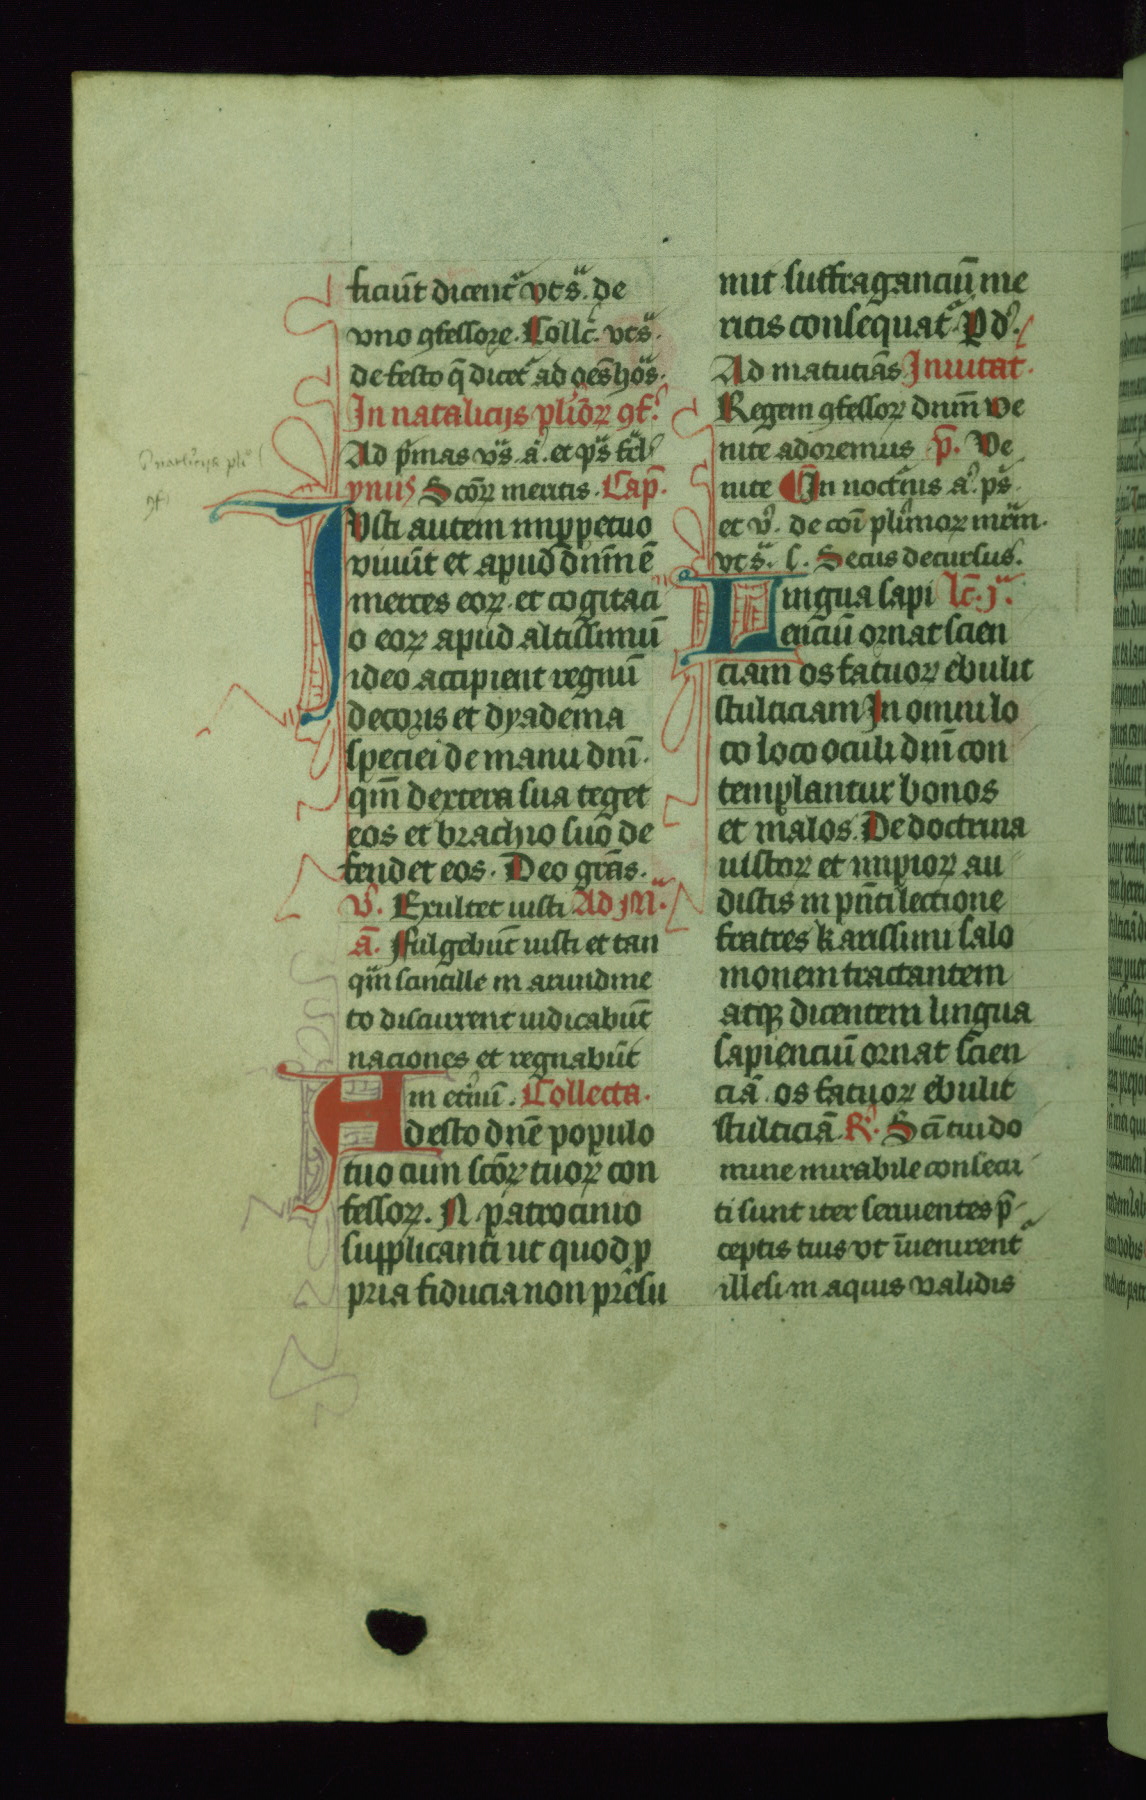 ficiūt dicent᷑ vt sᷓ. de
vno ꝯfessore. Collc̄. vt sᷓ.
de festo q̄ dicet᷑ ad oēs hoᷓs.
In natalicijs pl̄ioꝝ ꝯf᷑.
Ad p̄mas vᷓs. a᷑. et pᷓs fcl᷑
ymꝰ Scōꝝ meritis. Cap̄.
Iusti autem imꝑpetuo
viuūt et apud dnm̄ ē
merces eoꝝ. et cogitaci
o eoꝝ apud altissimū
ideo accipient regnū
decoris et dyadema
speciei de manu dnī.
qm̄ dextera sua teget
eos et brachio suo de
fendet eos. Deo grās.
V᷑. Exultet iusti Ad Mᷓ.
ā. Fulgebūt iusti et tan
qm̄ scintille in arundine
to discurrent iudicabūt
naciones et regnabūt
in et᷑nū. Collecta.
Adesto dnē populo
tuo cum scōꝝ tuoꝝ con
fessoꝝ. N. patrocinio
supplicanti ut quod ꝓ
pria fiducia non p̄esu
mit suffraganciū me
ritis consequat᷑. P d᷑.
Ad matutiās Inuitat.
Regem ꝯfessoꝝ dnm̄ ve
nite adoremus p̄. Ve
nite In noct᷑nis a᷑. ps̄
et v᷑. de cōi pl᷑imoꝝ mr̄m.
vt sᷓ. l. Secus decursus.
Lingua sapi lc̄. jᷓ.
enciū ornat scien
ciam os fatuoꝝ ebulit
stulticiam In omni lo
co loco oculi dnī con
templantur bonos
et malos. De doctrina
iustoꝝ et impioꝝ au
distis in pn̄ti lectione
fratres karissimi salo
monem tractantem
atqꝫ dicentem lingua
sapienciū ornat scien
ciā. os fatuoꝝ ebulit
stulticiā R᷑. Scī tui do
mine mirabile consecu
ti sunt iter seruientes p̄
ceptis tuis vt īuenirent᷑
illesi in aquis validis